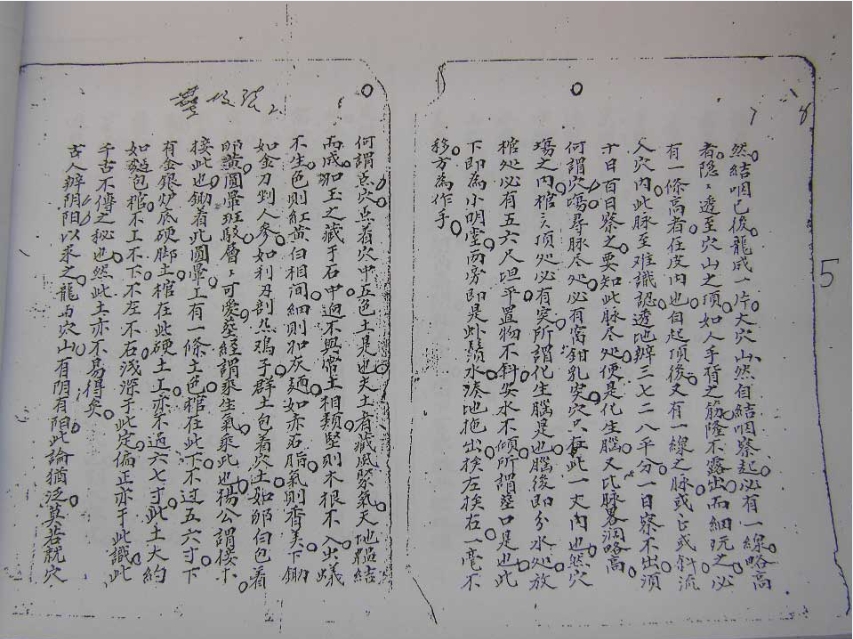 然結咽已後龍成一片大穴山然自結咽察起必有一線略高
者隐々透至穴山之頂如人手背之筋隆不露出而細玩之必
有一條高者在皮内也自起頂後又有一線之脉或上或斜流
入穴内此脉至难識認透地辨三七二八平分一日察不出須
十日百日察之要知此脉尽处便是化生腦又比脉畧濶略高
何謂穴塲尋脉尽处必有窩鉗乳突穴只在此一丈内也然穴
塲之内棺之頂处必有突所謂化生腦是也腦後即分水处放
棺处必有五六尺坦平置物不斜安水不傾所謂葬口是也此
下即為小明堂两旁即是虾鬚水湊地拖出挨左挨右一毫不
移方為作手
何謂点穴点着穴中五色土是也夫土者藏風聚氣天地結
而成如玉之藏于石中迥不與常土相類堅則木根不入出蟻
不生色則紅黄白相间細則如灰麺如赤石脂氣則香美下鋤
如金刀割人參如利刀剖九鸡于群土包着穴土如卵白包着
卵黄圓暈班駁層々可愛葬經謂乘生氣乘此也楊公謂倿木
接此也鋤着此圓暈上有一條土色棺在此下不过五六寸下
有金銀炉底硬脚土棺在此硬土上亦不過六七寸此土大約
如包棺不上不下不左不右浅深于此定偏正亦于此識此
千古不傳之秘也然此土亦不易得矣
古人辨阴阳以来之龍与穴山有阴有阳此論猶泛莫若就穴
5